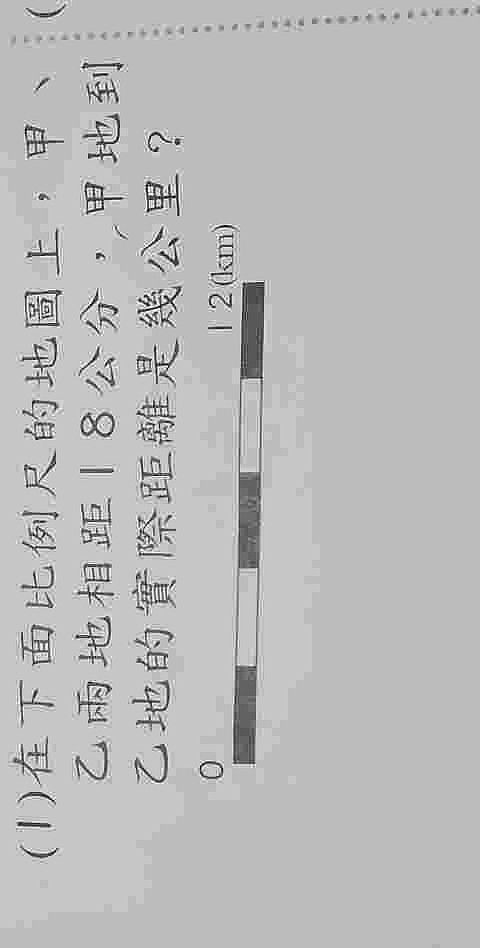 (1)在下面比例尺的地圖上，甲、
乙兩地相距18公分，甲地到
乙地的實際距離是幾公里？
0 12(km)